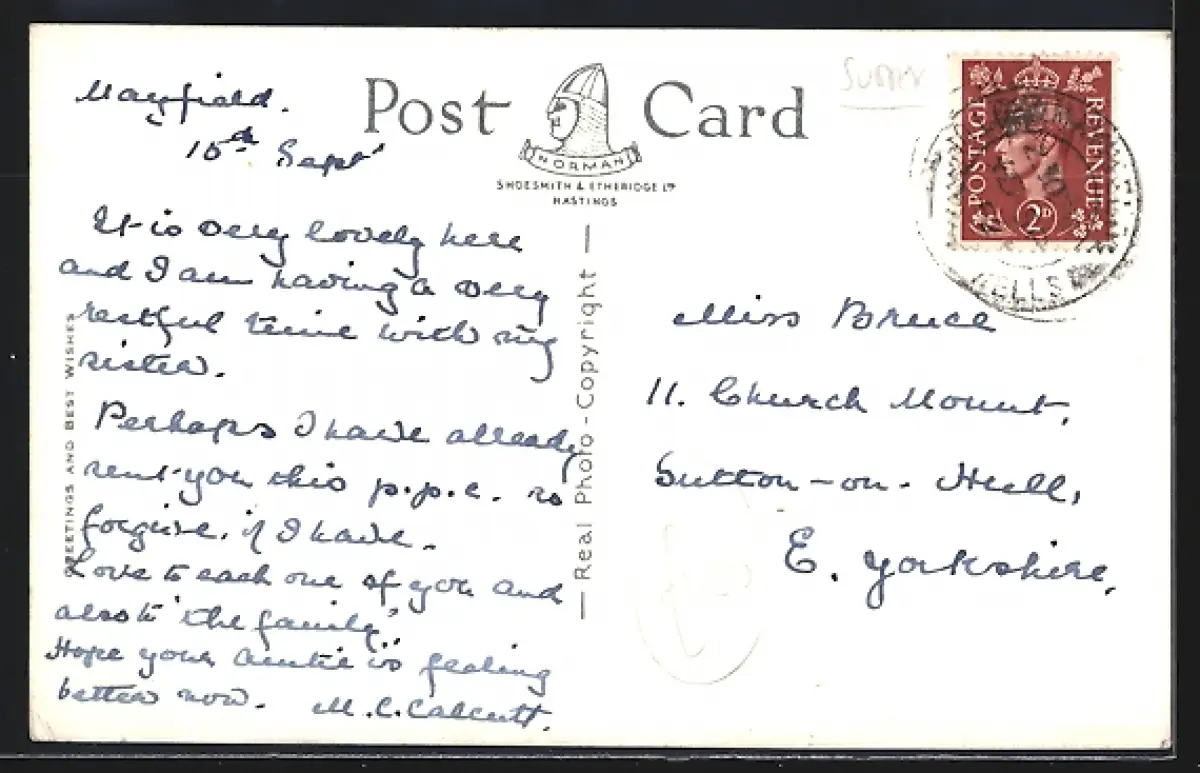 Mayfield.
10th Sept
Post Card
NORMAN
SHOESMITH & ETHERIDGE LTD
HASTINGS
It is very lovely here
and I am having a very
restful time with my
sister.
Perhaps I have already
sent you this p.p.c. so
forgive, if I have.
Love to each one of you and
also to "the family".
Hope your Auntie is feeling
better now. M.C. Calcutt.
GREETINGS AND BEST WISHES
— Real Photo - Copyright —
SUSSEX
POSTAGE
REVENUE
2D
WELLS
Miss Bruce
11. Church Mount,
Sutton-on-Hull,
E. Yorkshire,